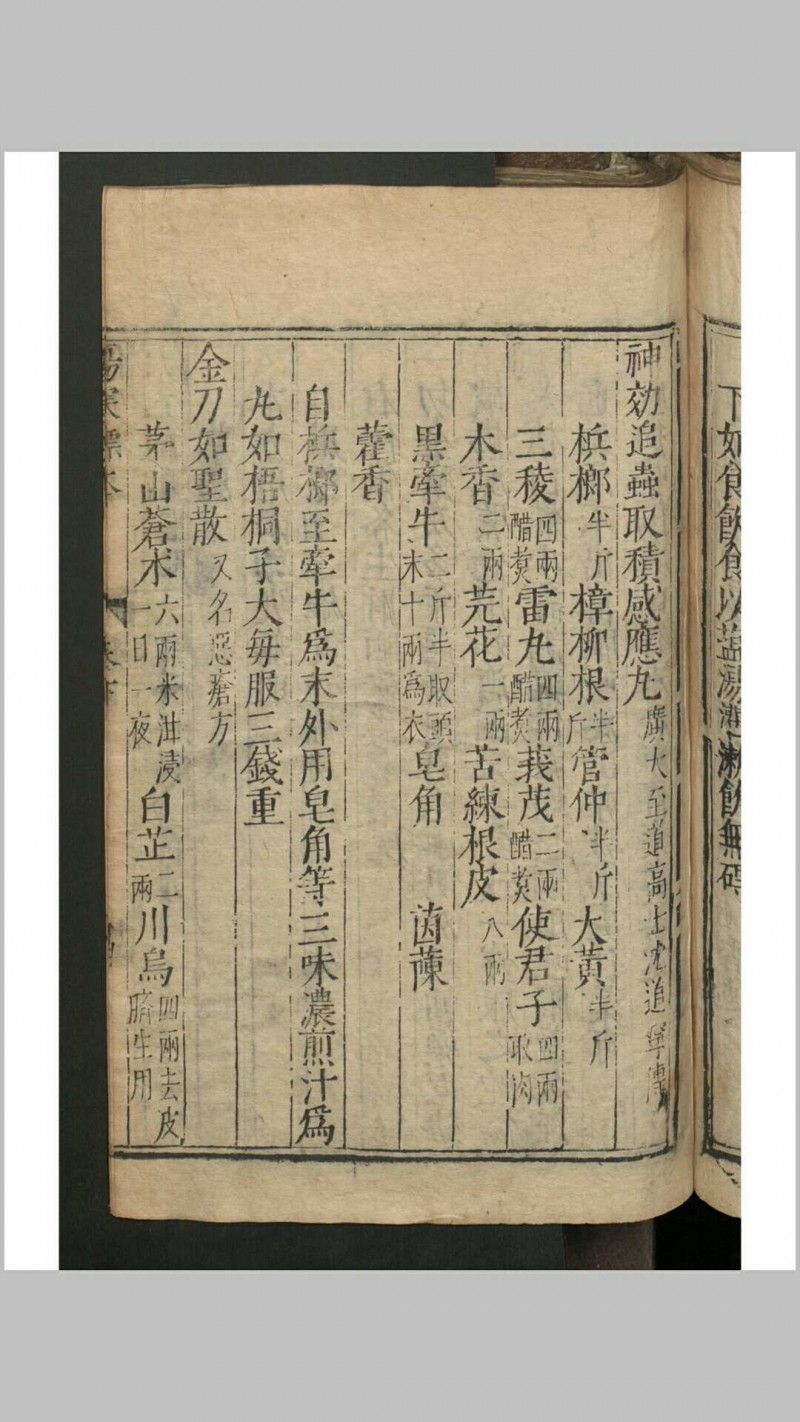 下如食飲食以鹽湯灌漱飲無碍
神効追蟲取積感應丸廣大至道高士沈道寧傳
檳榔半斤樟柳根半斤管仲半斤大黃半斤
三稜四兩醋煑雷丸四兩醋煑莪茂二兩醋煑使君子四兩取肉
木香二兩芫花一兩苦練根皮八兩
黑牽牛二斤半取頭末十兩爲衣皂角 茵蔯
藿香
自檳榔至牽牛爲末外用皂角等三味濃煎汁爲
丸如梧桐子大每服三錢重
金刀如聖散又名惡瘡方
茅山蒼术六兩米泔浸一日一夜白芷二兩川烏四兩去皮臍生用